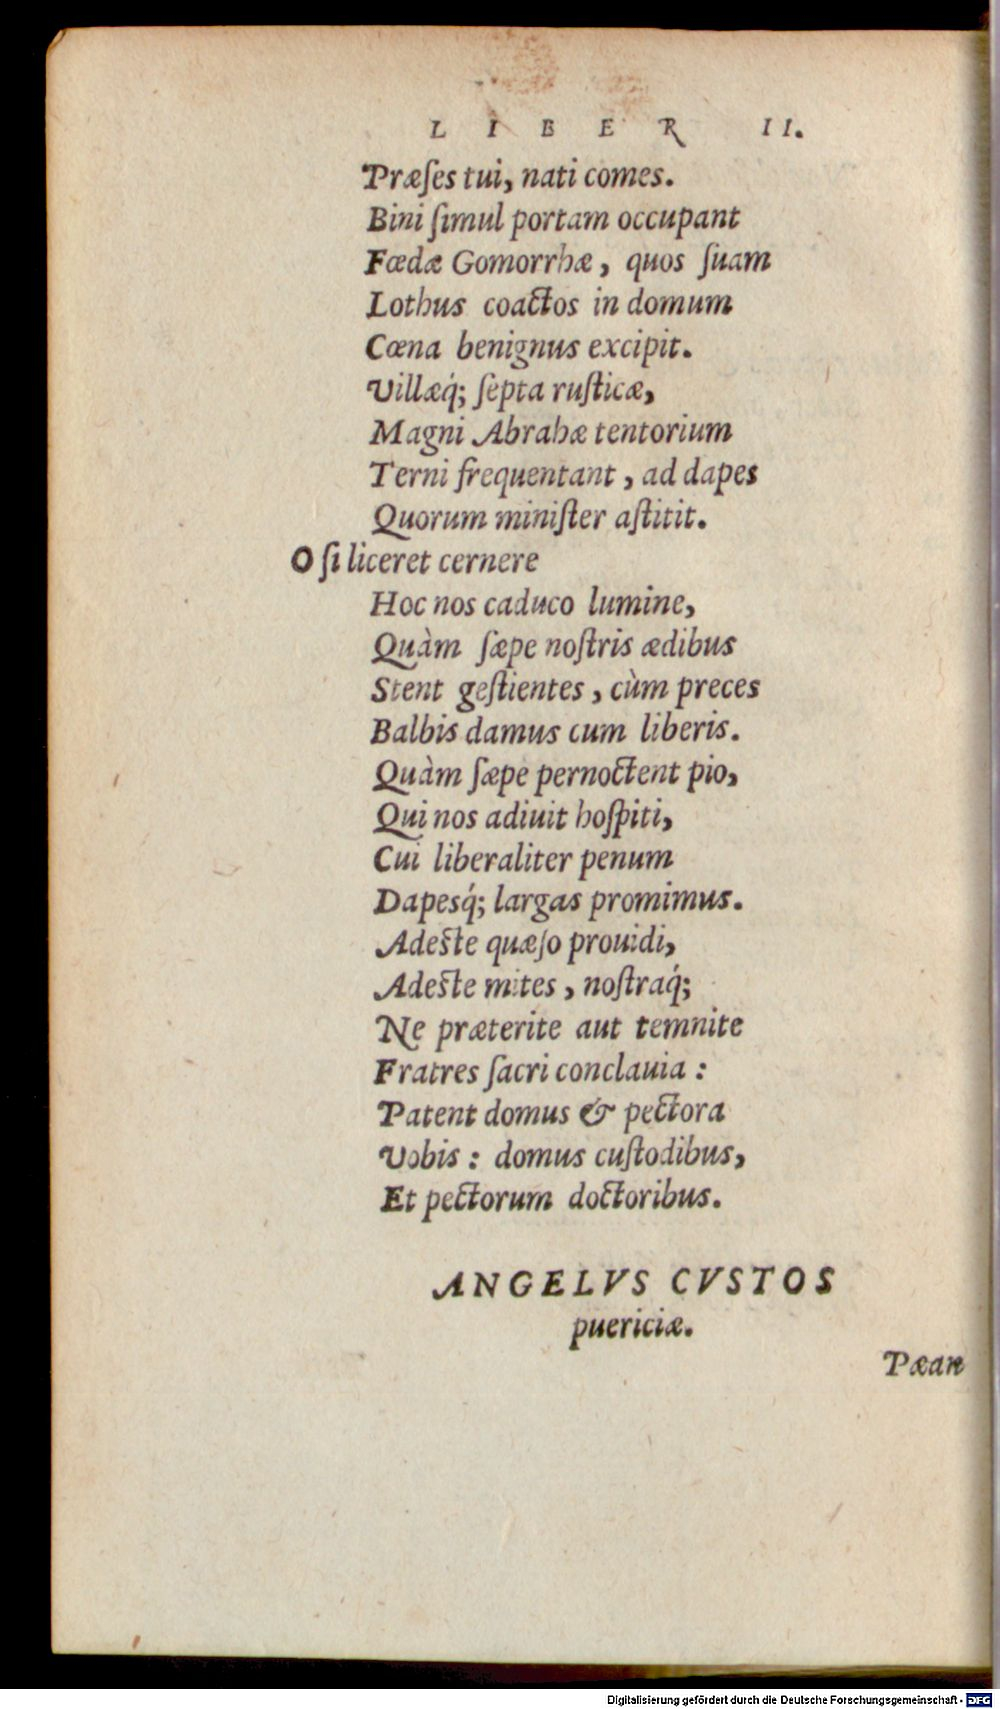 LIBER II.
Præſes tui, nati comes.
Bini ſimul portam occupant
Fœdæ Gomorrhæ, quos ſuam
Lothus coactos in domum
Cœna benignus excipit.
Villæq́; ſepta ruſticæ,
Magni Abrahæ tentorium
Terni frequentant, ad dapes
Quorum miniſter aſtitit.
O ſi liceret cernere
Hoc nos caduco lumine,
Quàm ſæpe noſtris ædibus
Stent geſtientes, cùm preces
Balbis damus cum liberis.
Quàm ſæpe pernoctent pio,
Qui nos adiuit hoſpiti,
Cui liberaliter penum
Dapesq́; largas promimus.
Adeſte quæſo prouidi,
Adeſte mites, noſtraq́;
Ne præterite aut temnite
Fratres ſacri conclauia :
Patent domus & pectora
Vobis : domus cuſtodibus,
Et pectorum doctoribus.
ANGELVS CVSTOS
puericiæ.
Pæan
Digitalisierung gefördert durch die Deutsche Forschungsgemeinschaft - DFG